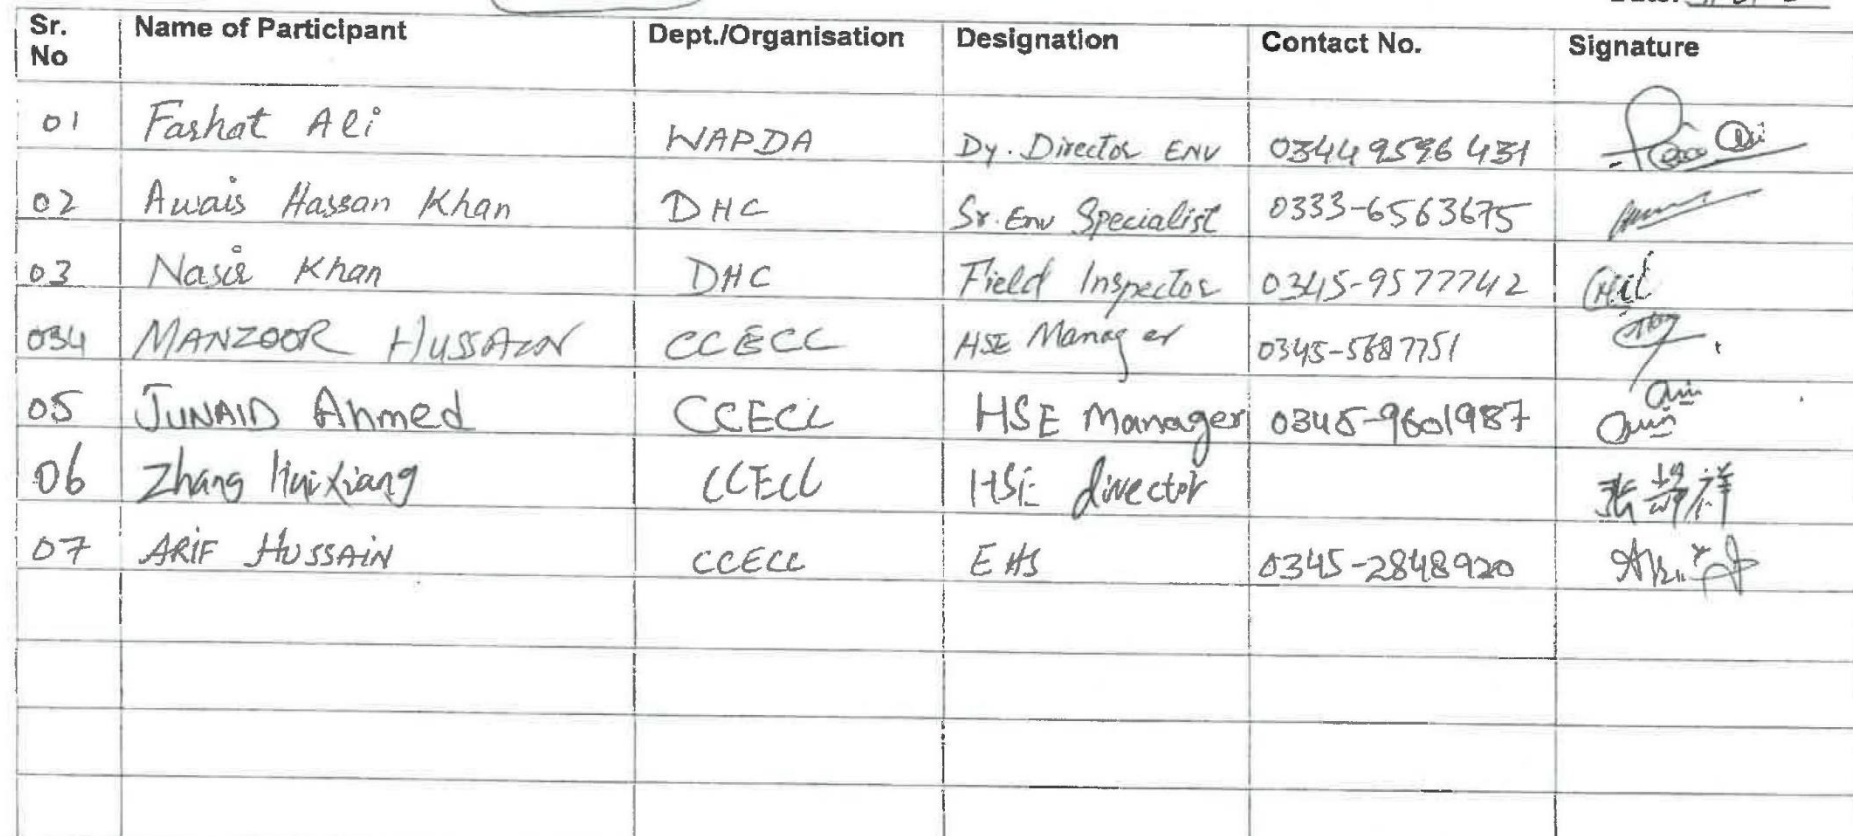 Sr. No Name of Participant Dept./Organisation Designation Contact No. Signature
01 Farhat Ali WAPDA Dy. Director ENV 03449596431
02 Awais Hassan Khan DHC Sr. Env Specialist 0333-6563675
03 Nasir Khan DHC Field Inspector 0345-9577742
034 MANZOOR HUSSAIN CCECC HSE Manager 0345-5687751
05 JUNAID Ahmed CCECC HSE Manager 0345-9601987
06 Zhang Huixiang CCECC HSE director
07 ARIF HUSSAIN CCECC EHS 0345-2848920